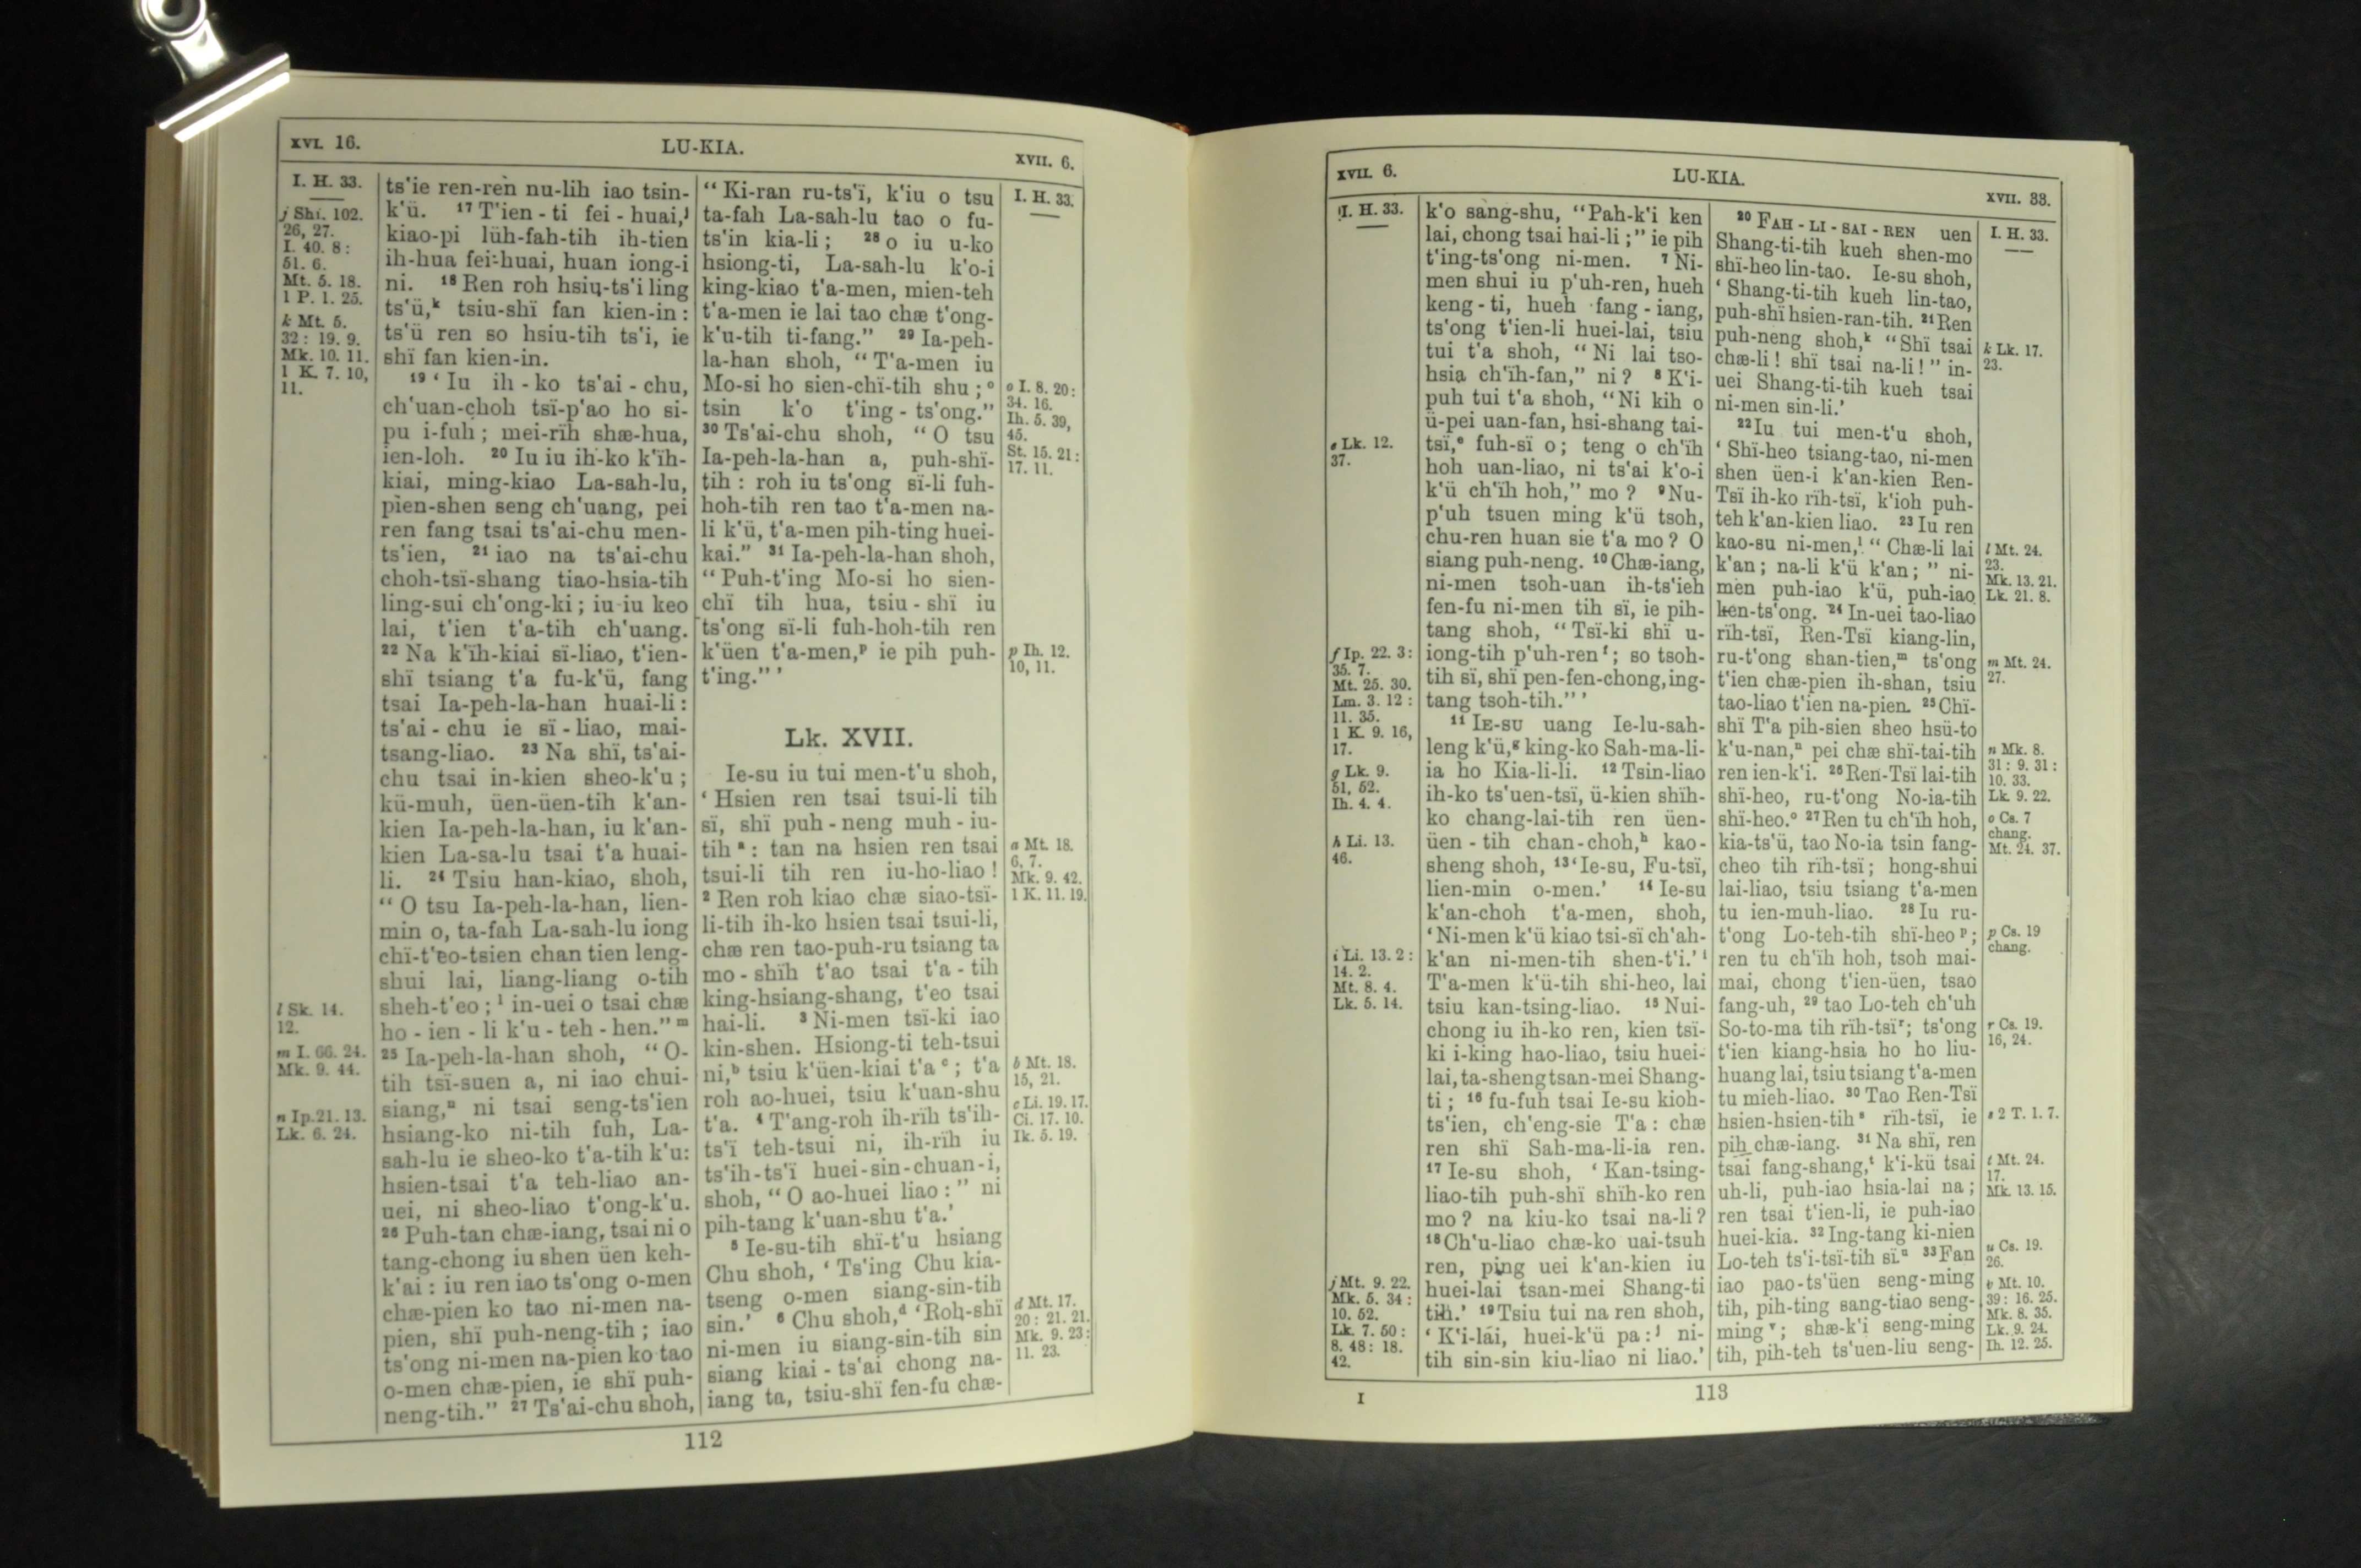 XVI. 16.
LU-KIA.
XVII. 6.
I. H. 33.
j Shï. 102.
26, 27.
I. 40. 8 :
51. 6.
Mt. 5. 18.
1 P. 1. 25.
k Mt. 5.
32 : 19. 9.
Mk. 10. 11.
1 K. 7. 10,
11.
l Sk. 14.
12.
m I. 66. 24.
Mk. 9. 44.
n Ip. 21. 13.
Lk. 6. 24.
ts'ie ren-ren nu-lih iao tsin-
k'ü. 17 T'ien - ti fei - huai,j
kiao-pi lüh-fah-tih ih-tien
ih-hua fei-huai, huan iong-i
ni. 18 Ren roh hsiu-ts'i ling
ts'ü,k tsiu-shï fan kien-in :
ts'ü ren so hsiu-tih ts'i, ie
shï fan kien-in.
19 ‘ Iu ih - ko ts'ai - chu,
ch'uan-choh tsï-p'ao ho si-
pu i-fuh ; mei-rïh shæ-hua,
ien-loh. 20 Iu iu ih-ko k'ïh-
kiai, ming-kiao La-sah-lu,
pien-shen seng ch'uang, pei
ren fang tsai ts'ai-chu men-
ts'ien, 21 iao na ts'ai-chu
choh-tsï-shang tiao-hsia-tih
ling-sui ch'ong-ki ; iu iu keo
lai, t'ien t'a-tih ch'uang.
22 Na k'ïh-kiai sï-liao, t'ien-
shï tsiang t'a fu-k'ü, fang
tsai Ia-peh-la-han huai-li :
ts'ai - chu ie sï - liao, mai-
tsang-liao. 23 Na shï, ts'ai-
chu tsai in-kien sheo-k'u ;
kü-muh, üen-üen-tih k'an-
kien Ia-peh-la-han, iu k'an-
kien La-sa-lu tsai t'a huai-
li. 24 Tsiu han-kiao, shoh,
“ O tsu Ia-peh-la-han, lien-
min o, ta-fah La-sah-lu iong
chï-t'eo-tsien chan tien leng-
shui lai, liang-liang o-tih
sheh-t'eo ; l in-uei o tsai chæ
ho - ien - li k'u - teh - hen.” m
25 Ia-peh-la-han shoh, “ O-
tih tsï-suen a, ni iao chui-
siang,n ni tsai seng-ts'ien
hsiang-ko ni-tih fuh, La-
sah-lu ie sheo-ko t'a-tih k'u :
hsien-tsai t'a teh-liao an-
uei, ni sheo-liao t'ong-k'u.
26 Puh-tan chæ-iang, tsai ni o
tang-chong iu shen üen keh-
k'ai : iu ren iao ts'ong o-men
chæ-pien ko tao ni-men na-
pien, shï puh-neng-tih ; iao
ts'ong ni-men na-pien ko tao
o-men chæ-pien, ie shï puh-
neng-tih.” 27 Ts'ai-chu shoh,
“ Ki-ran ru-ts'ï, k'iu o tsu
ta-fah La-sah-lu tao o fu-
ts'in kia-li ; 28 o iu u-ko
hsiong-ti, La-sah-lu k'o-i
king-kiao t'a-men, mien-teh
t'a-men ie lai tao chæ t'ong-
k'u-tih ti-fang.” 29 Ia-peh-
la-han shoh, “ T'a-men iu
Mo-si ho sien-chï-tih shu ; o
tsin k'o t'ing - ts'ong.”
30 Ts'ai-chu shoh, “ O tsu
Ia-peh-la-han a, puh-shï-
tih : roh iu ts'ong sï-li fuh-
hoh-tih ren tao t'a-men na-
li k'ü, t'a-men pih-ting huei-
kai.” 31 Ia-peh-la-han shoh,
“ Puh-t'ing Mo-si ho sien-
chï tih hua, tsiu - shï iu
ts'ong sï-li fuh-hoh-tih ren
k'üen t'a-men,p ie pih puh-
t'ing.” ’
Lk. XVII.
Ie-su iu tui men-t'u shoh,
‘ Hsien ren tsai tsui-li tih
sï, shï puh - neng muh - iu-
tih a : tan na hsien ren tsai
tsui-li tih ren iu-ho-liao !
2 Ren roh kiao chæ siao-tsï-
li-tih ih-ko hsien tsai tsui-li,
chæ ren tao-puh-ru tsiang ta
mo - shïh t'ao tsai t'a - tih
king-hsiang-shang, t'eo tsai
hai-li. 3 Ni-men tsï-ki iao
kin-shen. Hsiong-ti teh-tsui
ni,b tsiu k'üen-kiai t'a c ; t'a
roh ao-huei, tsiu k'uan-shu
t'a. 4 T'ang-roh ih-rïh ts'ih-
ts'ï teh-tsui ni, ih-rïh iu
ts'ih-ts'ï huei-sin-chuan-i,
shoh, “ O ao-huei liao : ” ni
pih-tang k'uan-shu t'a.’
5 Ie-su-tih shï-t'u hsiang
Chu shoh, ‘ Ts'ing Chu kia-
tseng o-men siang-sin-tih
sin.’ 6 Chu shoh,d ‘ Roh-shï
ni-men iu siang-sin-tih sin
siang kiai - ts'ai chong na-
iang ta, tsiu-shï fen-fu chæ-
I. H. 33.
o I. 8. 20 :
34. 16.
Ih. 5. 39,
45.
St. 15. 21 :
17. 11.
p Ih. 12.
10, 11.
a Mt. 18.
6, 7.
Mk. 9. 42.
1 K. 11. 19.
b Mt. 18.
15, 21.
c Li. 19. 17.
Ci. 17. 10.
Ik. 5. 19.
d Mt. 17.
20 : 21. 21.
Mk. 9. 23 :
11. 23.
112
XVII. 6.
LU-KIA.
XVII. 33.
I. H. 33.
e Lk. 12.
37.
f Ip. 22. 3 :
35. 7.
Mt. 25. 30.
Lm. 3. 12 :
11. 35.
1 K. 9. 16,
17.
g Lk. 9.
51, 52.
Ih. 4. 4.
h Li. 13.
46.
i Li. 13. 2 :
14. 2.
Mt. 8. 4.
Lk. 5. 14.
j Mt. 9. 22.
Mk. 5. 34 :
10. 52.
Lk. 7. 50 :
8. 48 : 18.
42.
k'o sang-shu, “Pah-k'i ken
lai, chong tsai hai-li ;” ie pih
t'ing-ts'ong ni-men. 7 Ni-
men shui iu p'uh-ren, hueh
keng - ti, hueh fang - iang,
ts'ong t'ien-li huei-lai, tsiu
tui t'a shoh, “ Ni lai tso-
hsia ch'ïh-fan,” ni ? 8 K'i-
puh tui t'a shoh, “ Ni kih o
ü-pei uan-fan, hsi-shang tai-
tsï,e fuh-sï o ; teng o ch'ïh
hoh uan-liao, ni ts'ai k'o-i
k'ü ch'ïh hoh,” mo ? 9 Nu-
p'uh tsuen ming k'ü tsoh,
chu-ren huan sie t'a mo ? O
siang puh-neng. 10 Chæ-iang,
ni-men tsoh-uan ih-ts'ieh
fen-fu ni-men tih sï, ie pih-
tang shoh, “ Tsï-ki shï u-
iong-tih p'uh-ren f ; so tsoh-
tih sï, shï pen-fen-chong, ing-
tang tsoh-tih.” ’
11 IE-SU uang Ie-lu-sah-
leng k'ü,g king-ko Sah-ma-li-
ia ho Kia-li-li. 12 Tsin-liao
ih-ko ts'uen-tsï, ü-kien shïh-
ko chang-lai-tih ren üen-
üen - tih chan-choh,h kao-
sheng shoh, 13 ‘ Ie-su, Fu-tsï,
lien-min o-men.’ 14 Ie-su
k'an-choh t'a-men, shoh,
‘ Ni-men k'ü kiao tsi-sï ch'ah-
k'an ni-men-tih shen-t'i.’ i
T'a-men k'ü-tih shi-heo, lai
tsiu kan-tsing-liao. 15 Nui-
chong iu ih-ko ren, kien tsï-
ki i-king hao-liao, tsiu huei-
lai, ta-sheng tsan-mei Shang-
ti ; 16 fu-fuh tsai Ie-su kioh-
ts'ien, ch'eng-sie T'a : chæ
ren shï Sah-ma-li-ia ren.
17 Ie-su shoh, ‘ Kan-tsing-
liao-tih puh-shï shïh-ko ren
mo ? na kiu-ko tsai na-li ?
18 Ch'u-liao chæ-ko uai-tsuh
ren, ping uei k'an-kien iu
huei-lai tsan-mei Shang-ti
tih.’ 19 Tsiu tui na ren shoh,
‘ K'i-lai, huei-k'ü pa : j ni-
tih sin-sin kiu-liao ni liao.’
20 FAH - LI - SAI - REN uen
Shang-ti-tih kueh shen-mo
shï-heo lin-tao. Ie-su shoh,
‘ Shang-ti-tih kueh lin-tao,
puh-shï hsien-ran-tih. 21 Ren
puh-neng shoh,k “ Shï tsai
chæ-li ! shï tsai na-li ! ” in-
uei Shang-ti-tih kueh tsai
ni-men sin-li.’
22 Iu tui men-t'u shoh,
‘ Shï-heo tsiang-tao, ni-men
shen üen-i k'an-kien Ren-
Tsï ih-ko rïh-tsï, k'ioh puh-
teh k'an-kien liao. 23 Iu ren
kao-su ni-men,l “ Chæ-li lai
k'an ; na-li k'ü k'an ; ” ni-
men puh-iao k'ü, puh-iao
ken-ts'ong. 24 In-uei tao-liao
rïh-tsï, Ren-Tsï kiang-lin,
ru-t'ong shan-tien,m ts'ong
t'ien chæ-pien ih-shan, tsiu
tao-liao t'ien na-pien. 25 Chï-
shï T'a pih-sien sheo hsü-to
k'u-nan,n pei chæ shï-tai-tih
ren ien-k'i. 26 Ren-Tsï lai-tih
shï-heo, ru-t'ong No-ia-tih
shï-heo.o 27 Ren tu ch'ïh hoh,
kia-ts'ü, tao No-ia tsin fang-
cheo tih rïh-tsï ; hong-shui
lai-liao, tsiu tsiang t'a-men
tu ien-muh-liao. 28 Iu ru-
t'ong Lo-teh-tih shï-heo p ;
ren tu ch'ïh hoh, tsoh mai-
mai, chong t'ien-üen, tsao
fang-uh, 29 tao Lo-teh ch'uh
So-to-ma tih rïh-tsï r ; ts'ong
t'ien kiang-hsia ho ho liu-
huang lai, tsiu tsiang t'a-men
tu mieh-liao. 30 Tao Ren-Tsï
hsien-hsien-tih s rïh-tsï, ie
pih chæ-iang. 31 Na shï, ren
tsai fang-shang,t k'i-kü tsai
uh-li, puh-iao hsia-lai na ;
ren tsai t'ien-li, ie puh-iao
huei-kia. 32 Ing-tang ki-nien
Lo-teh ts'i-tsï-tih sï.u 33 Fan
iao pao-ts'üen seng-ming
tih, pih-ting sang-tiao seng-
ming v ; shæ-k'i seng-ming
tih, pih-teh ts'uen-liu seng-
I. H. 33.
k Lk. 17.
23.
l Mt. 24.
23.
Mk. 13. 21.
Lk. 21. 8.
m Mt. 24.
27.
n Mk. 8.
31 : 9. 31 :
10. 33.
Lk. 9. 22.
o Cs. 7
chang.
Mt. 24. 37.
p Cs. 19
chang.
r Cs. 19.
16, 24.
s 2 T. 1. 7.
t Mt. 24.
17.
Mk. 13. 15.
u Cs. 19.
26.
v Mt. 10.
39 : 16. 25.
Mk. 8. 35.
Lk. 9. 24.
Ih. 12. 25.
I
113